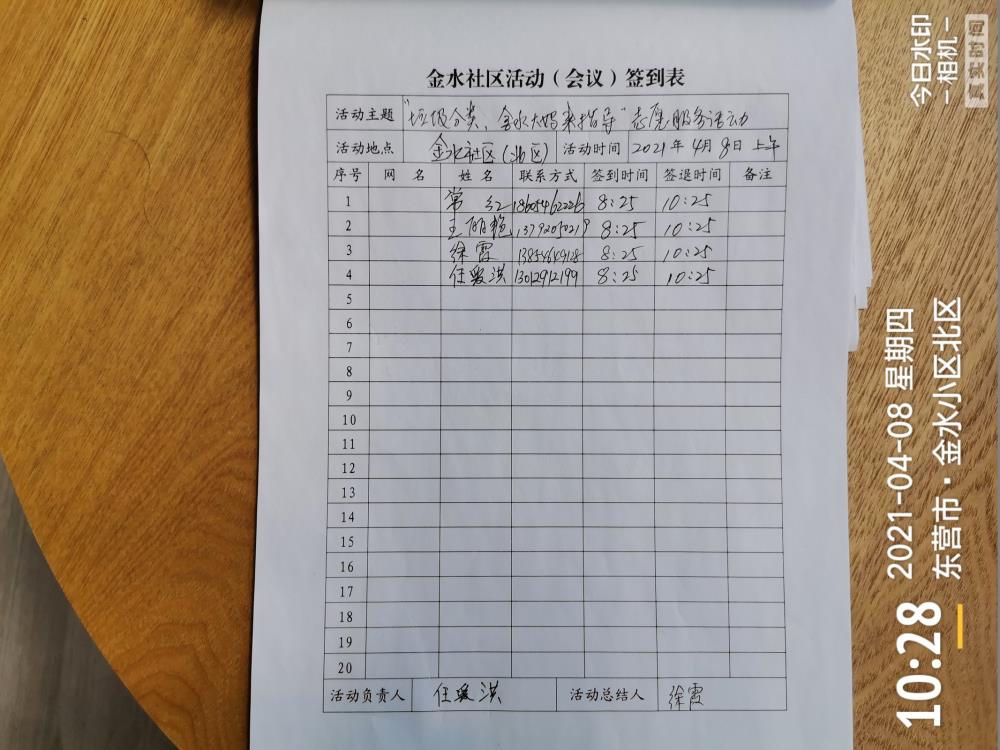 金水社区活动（会议）签到表
活动主题 "垃圾分类、金水大妈来指导"志愿服务活动
活动地点 金水社区（北区） 活动时间 2021年4月8日 上午
序号 网 名 姓 名 联系方式 签到时间 签退时间 备注
1 常 红 18605462226 8:25 10:25
2 王丽艳 8:25 10:25
3 徐霞 8:25 10:25
4 任爱洪 13012912199 8:25 10:25
5
6
7
8
9
10
11
12
13
14
15
16
17
18
19
20
活动负责人 任爱洪 活动总结人 徐霞
今日水印
－相机－
真实时间
10:28
2021-04-08 星期四
东营市·金水小区北区